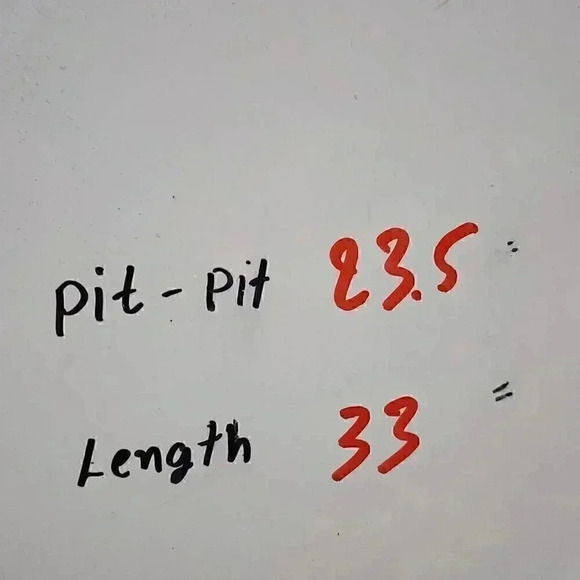 pit - pit 23.5 "
Length 33 "